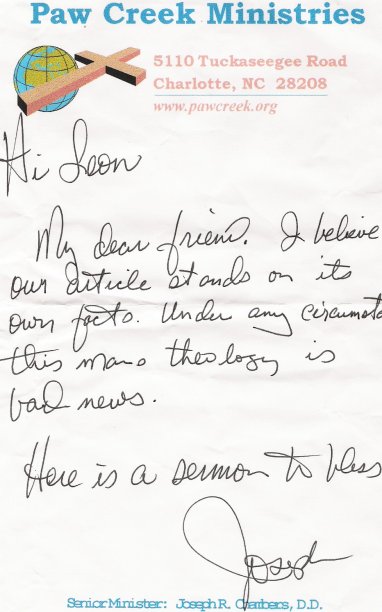 Paw Creek Ministries
5110 Tuckaseegee Road
Charlotte, NC 28208
www.pawcreek.org
Hi Leon
My dear friend. I believe
our article stands on its
own facts. Under any circumsta
this mans theology is
bad news.
Here is a sermon to bless
Joseph
Senior Minister: Joseph R. Chambers, D.D.